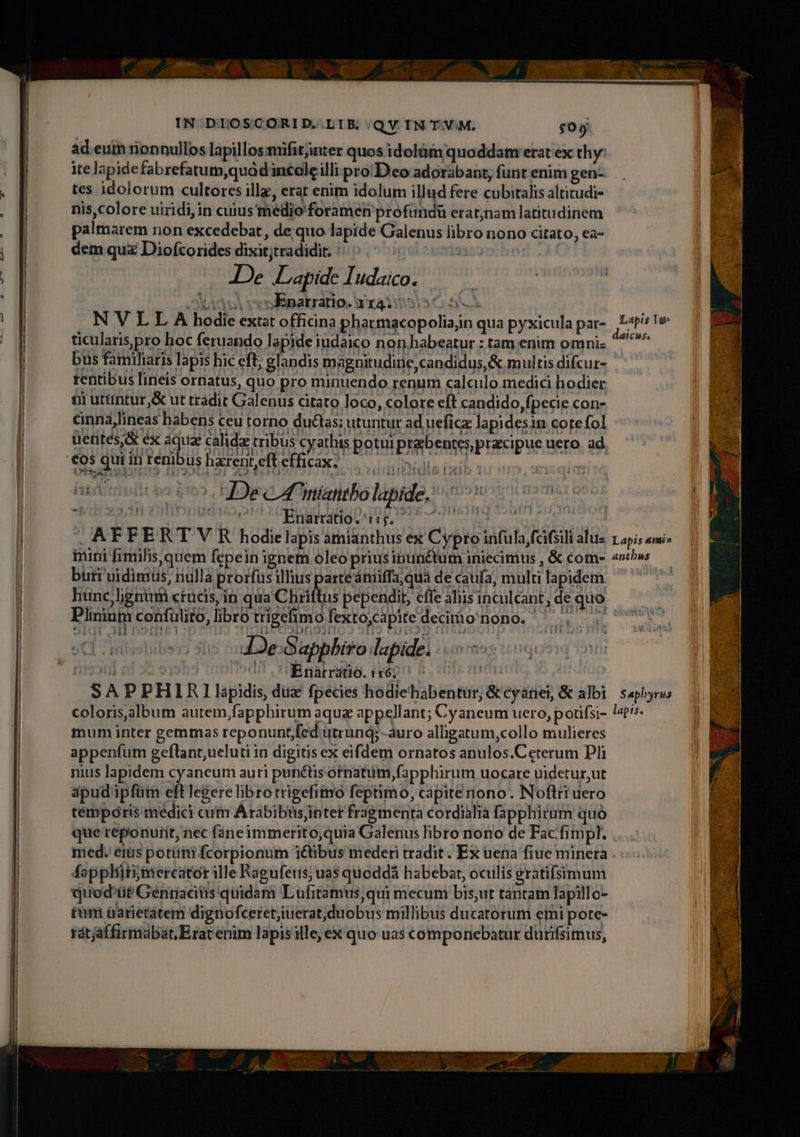 IN DIOSCORID. LIB. QVINTVM. 509
ad eum nonnullos lapillos misit, inter quos idolum quoddam erat ex thy-
ite lapide fabrefatum, quod incolę illi pro Deo adorabant, sunt enim gen-
tes idolorum cultores illæ, erat enim idolum illud fere cubitalis altitudi-
nis, colore uiridi, in cuius medio foramen profundũ erat, nam latitudinem
palmarem non excedebat, de quo lapide Galenus libro nono citato, ea-
dem quæ Dioscorides dixit, tradidit.
De Lapide Iudaico.
Enarratio. 114.
NVLLA hodie extat officina pharmacopolia, in qua pyxicula par-
Lapis Iu-
daicus.
ticularis, pro hoc seruando lapide iudaico non habeatur: tam enim omni-
bus familiaris lapis hic est, glandis magnitudine, candidus, & multis discur-
rentibus lineis ornatus, quo pro minuendo renum calculo medici hodier
ni utuntur, & ut tradit Galenus citato loco, colore est candido, specie con-
cinna, lineas habens ceu torno ductas: utuntur ad uesicæ lapides in cote sol
uentes, & ex aquæ calidæ tribus cyathis potui præbentes, præcipue uero ad
eos qui in renibus hærent, est efficax.
De Amiantho lapide.
Enarratio. 115.
AFFERTVR hodie lapis amianthus ex Cypro insula, scissili alu-
Lapis amiã
anthus
mini similis, quem sepe in ignem oleo prius inunctum iniecimus, & com-
buri uidimus, nulla prorsus illius parte amissa, qua de causa, multi lapidem
hunc, lignum crucis, in qua Christus pependit, esse aliis inculcant, de quo
Plinium consulito, libro trigesimo sexto, capite decimo nono.
De Sapphiro lapide.
Enarratio. 116.
SAPPHIRI lapidis, duæ species hodie habentur, & cyanei, & albi
Saphyrus
lapis.
coloris, album autem, sapphirum aquæ appellant; Cyaneum uero, potissi-
mum inter gemmas reponunt, sed utrunq; auro alligatum, collo mulieres
appensum gestant, ueluti in digitis ex eisdem ornatos anulos. Ceterum Pli
nius lapidem cyaneum auri punctis ornatum, sapphirum uocare uidetur, ut
apud ipsum est legere libro trigesimo septimo, capite nono. Nostri uero
temporis medici cum Arabibus, inter fragmenta cordialia sapphirum quo
que reponunt, nec sane immerito, quia Galenus libro nono de Fac. simpl.
med. eius potum scorpionum ictibus mederi tradit. Ex uena siue minera
sapphiri, mercator ille Raguseus, uas quoddã habebat, oculis gratissimum
quod ut Gennacius quidam Lusitamus, qui mecum bis, ut tantam lapillo-
rum uarietatem dignosceret, iuerat, duobus millibus ducatorum emi pote-
rat, affirmabat. Erat enim lapis ille, ex quo uas componebatur durissimus,